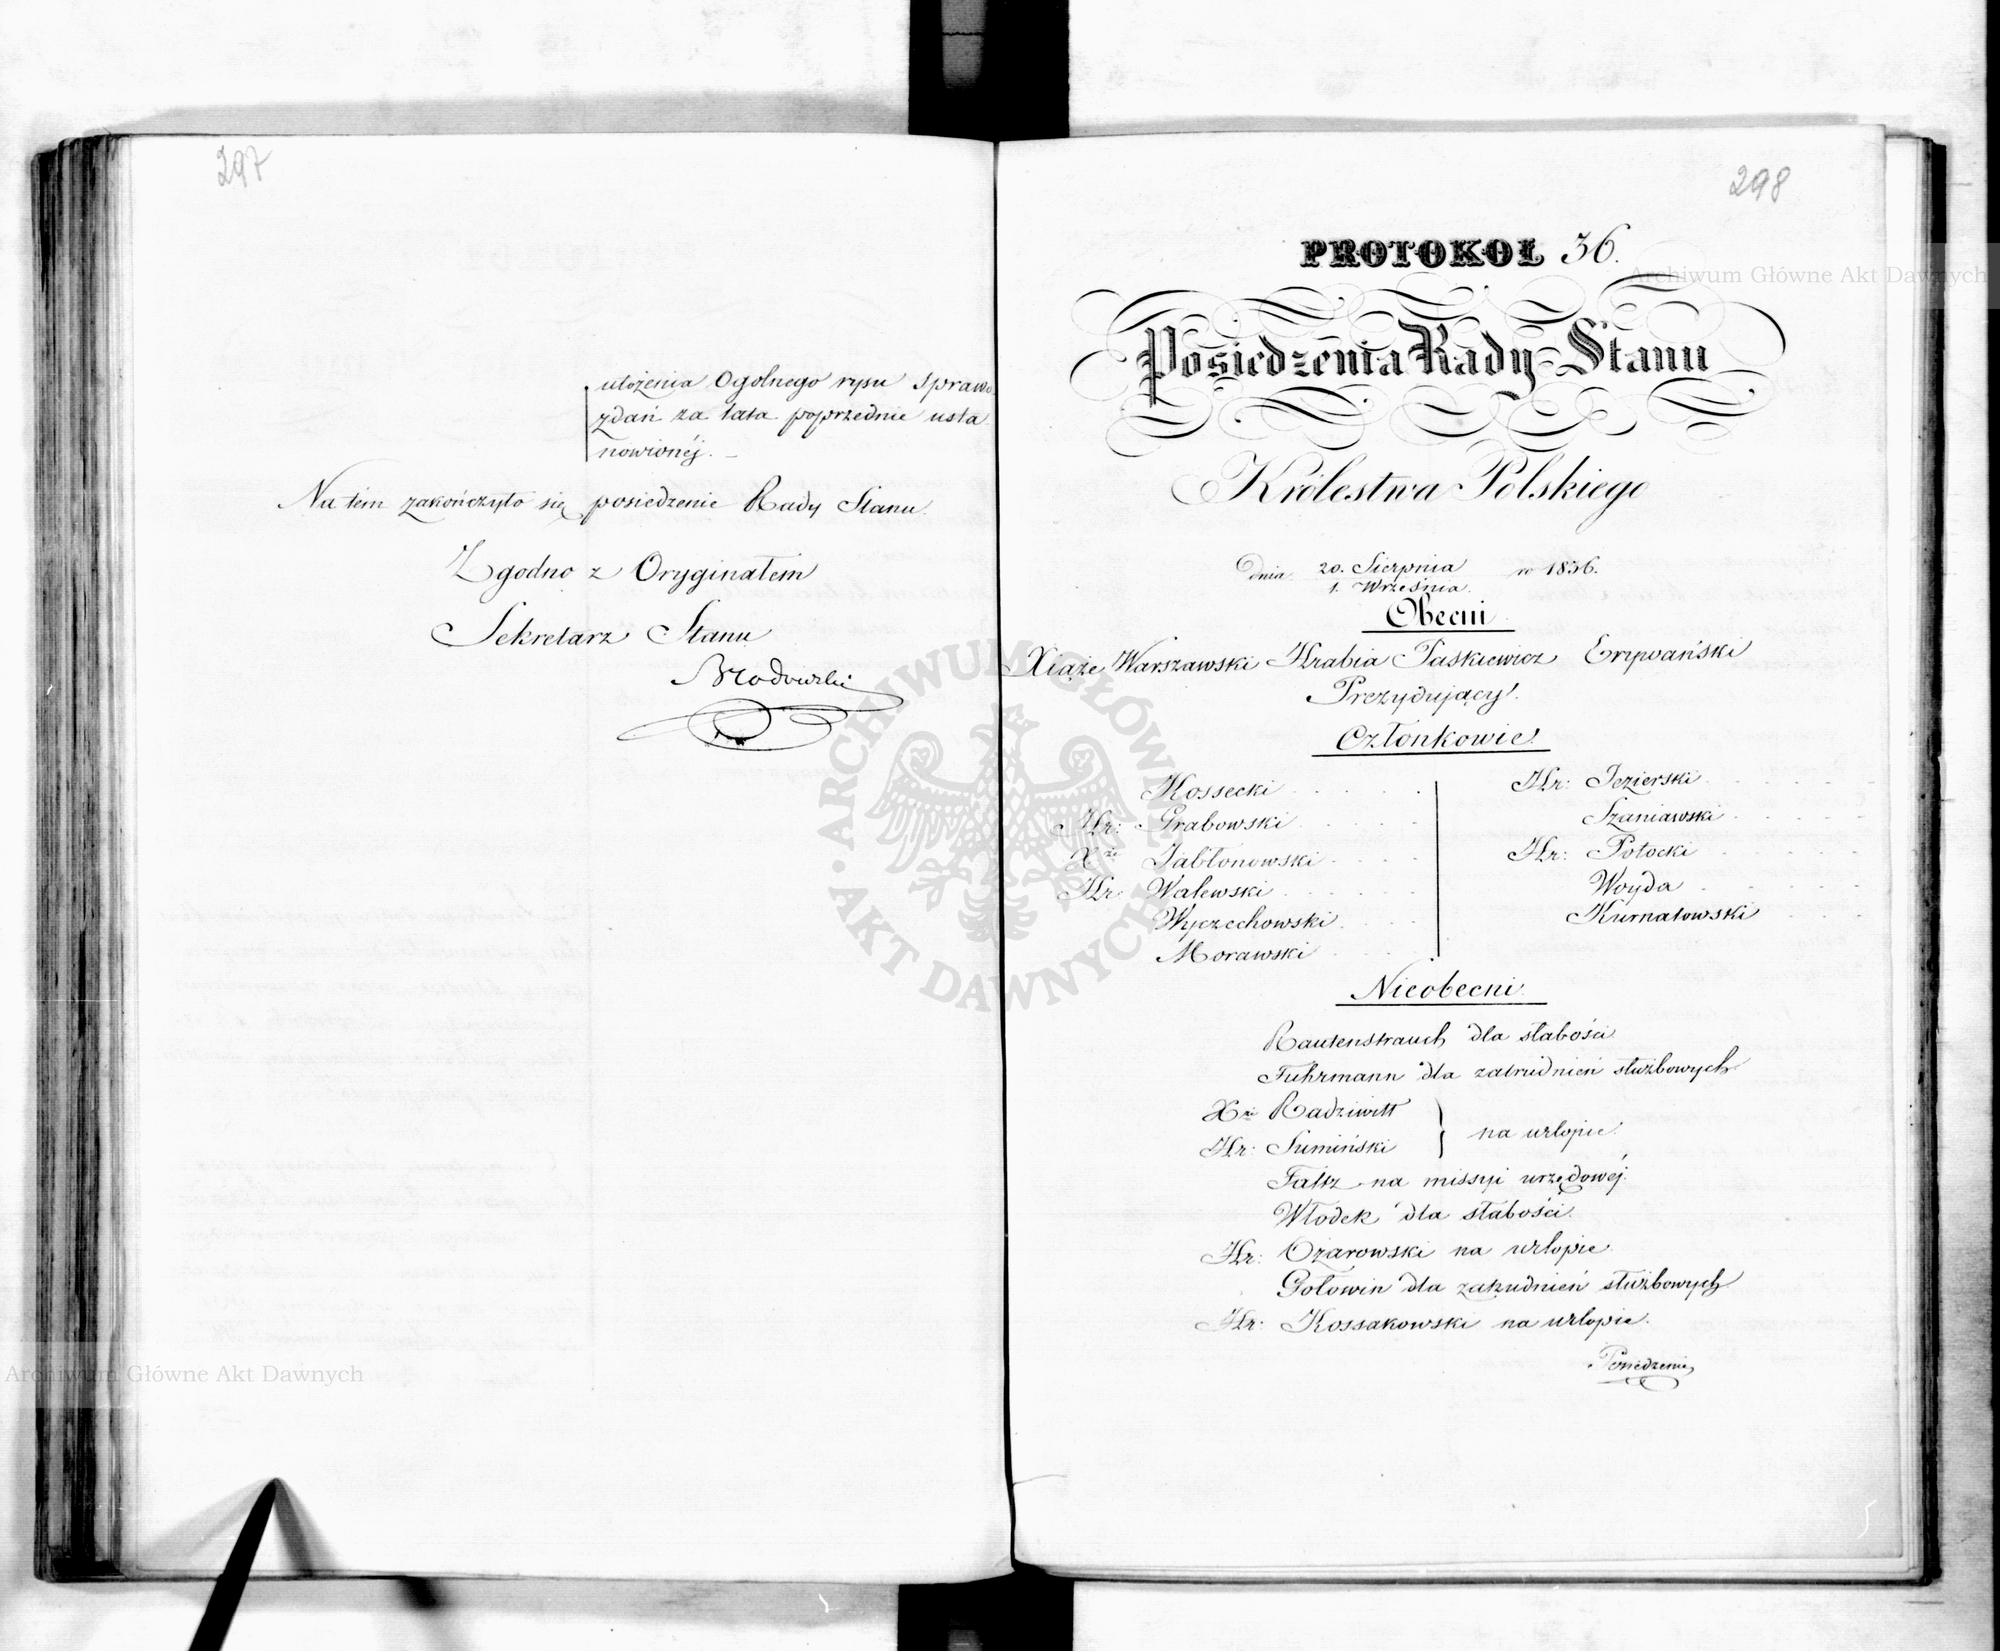 297
ułożenia Ogolnego rysu sprawo
zdań za lata poprzednie usta
nowionéj. –
Na tem zakończyło się posiedzenie Rady Stanu.
Zgodno z Oryginałem
Sekretarz Stanu
Brodowski
298
PROTOKOŁ 36.
Posiedzenia Rady Stanu
Królestwa Polskiego
dnia 20. Sierpnia / 1. Września. ro 1836.
Obecni
Xiąże Warszawski Hrabia Paskiewicz Erywański
Prezydujący.
Członkowie
Kossecki
Hr: Grabowski
X<sup>że</sup> Jabłonowski
Hr: Walewski
Wyczechowski
Morawski
Hr: Jezierski
Szaniawski
Hr: Potocki
Woyda
Kurnatowski
Nieobecni
Rautenstrauch dla słabości
Fuhrmann dla zatrudnień służbowych
X<sup>że</sup> Radziwiłł } na urlopie.
Hr: Sumiński
Faltz na missyi urzędowéj.
Włodek dla słabości.
Hr: Ożarowski na urlopie
Gołowin dla zatrudnień służbowych
Hr: Kossakowski na urlopie.
Posiedzenie
Archiwum Główne Akt Dawnych
ARCHIWUM GŁÓWNE AKT DAWNYCH
Archiwum Główne Akt Dawnych